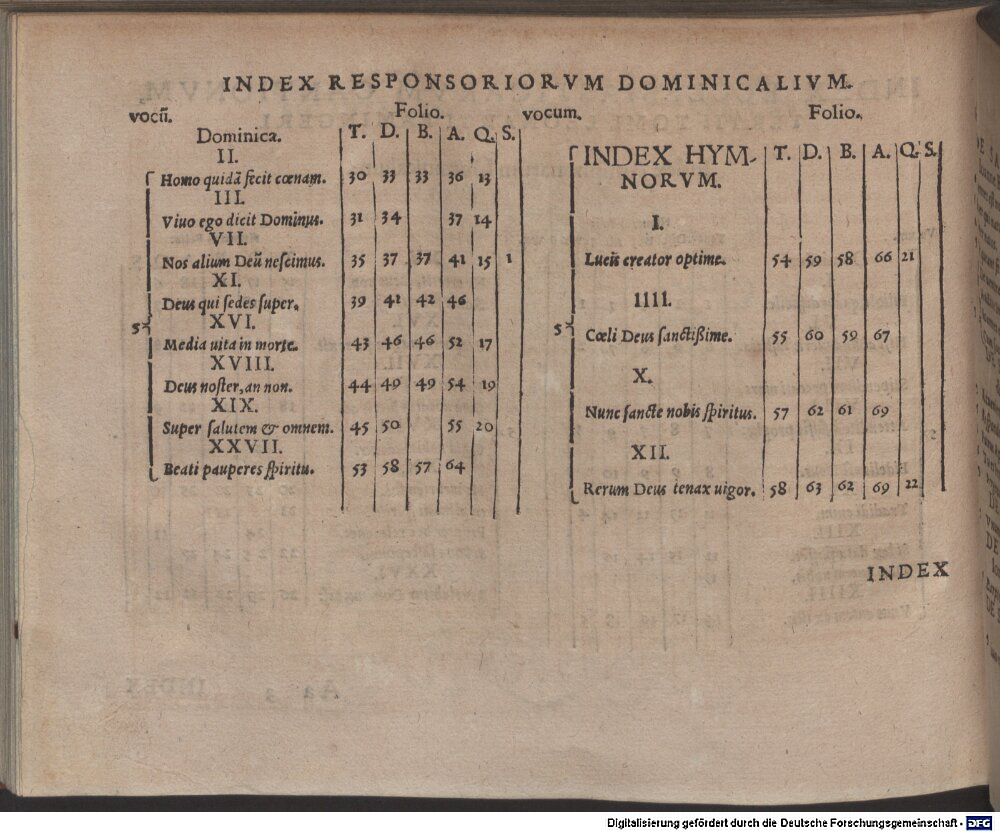 INDEX RESPONSORIORVM DOMINICALIVM.
vocū. Folio.
Dominica. T. D. B. A. Q. S.
II.
Homo quidā fecit cœnam. 30 33 33 36 13
III.
Viuo ego dicit Dominus. 31 34 37 14
VII.
Nos alium Deū nescimus. 35 37 37 41 15 1
XI.
Deus qui sedes super. 39 41 42 46
XVI.
5
Media uita in morte. 43 46 46 52 17
XVIII.
Deus noster, an non. 44 49 49 54 19
XIX.
Super salutem & omnem. 45 50 55 20
XXVII.
Beati pauperes spiritu. 53 58 57 64
vocum. Folio.
INDEX HYM- T. D. B. A. Q. S.
NORVM.
I.
Lucis creator optime. 54 59 58 66 21
IIII.
5
Cœli Deus sanctißime. 55 60 59 67
X.
Nunc sancte nobis spiritus. 57 62 61 69
XII.
Rerum Deus tenax uigor. 58 63 62 69 22
INDEX
Digitalisierung gefördert durch die Deutsche Forschungsgemeinschaft - DFG